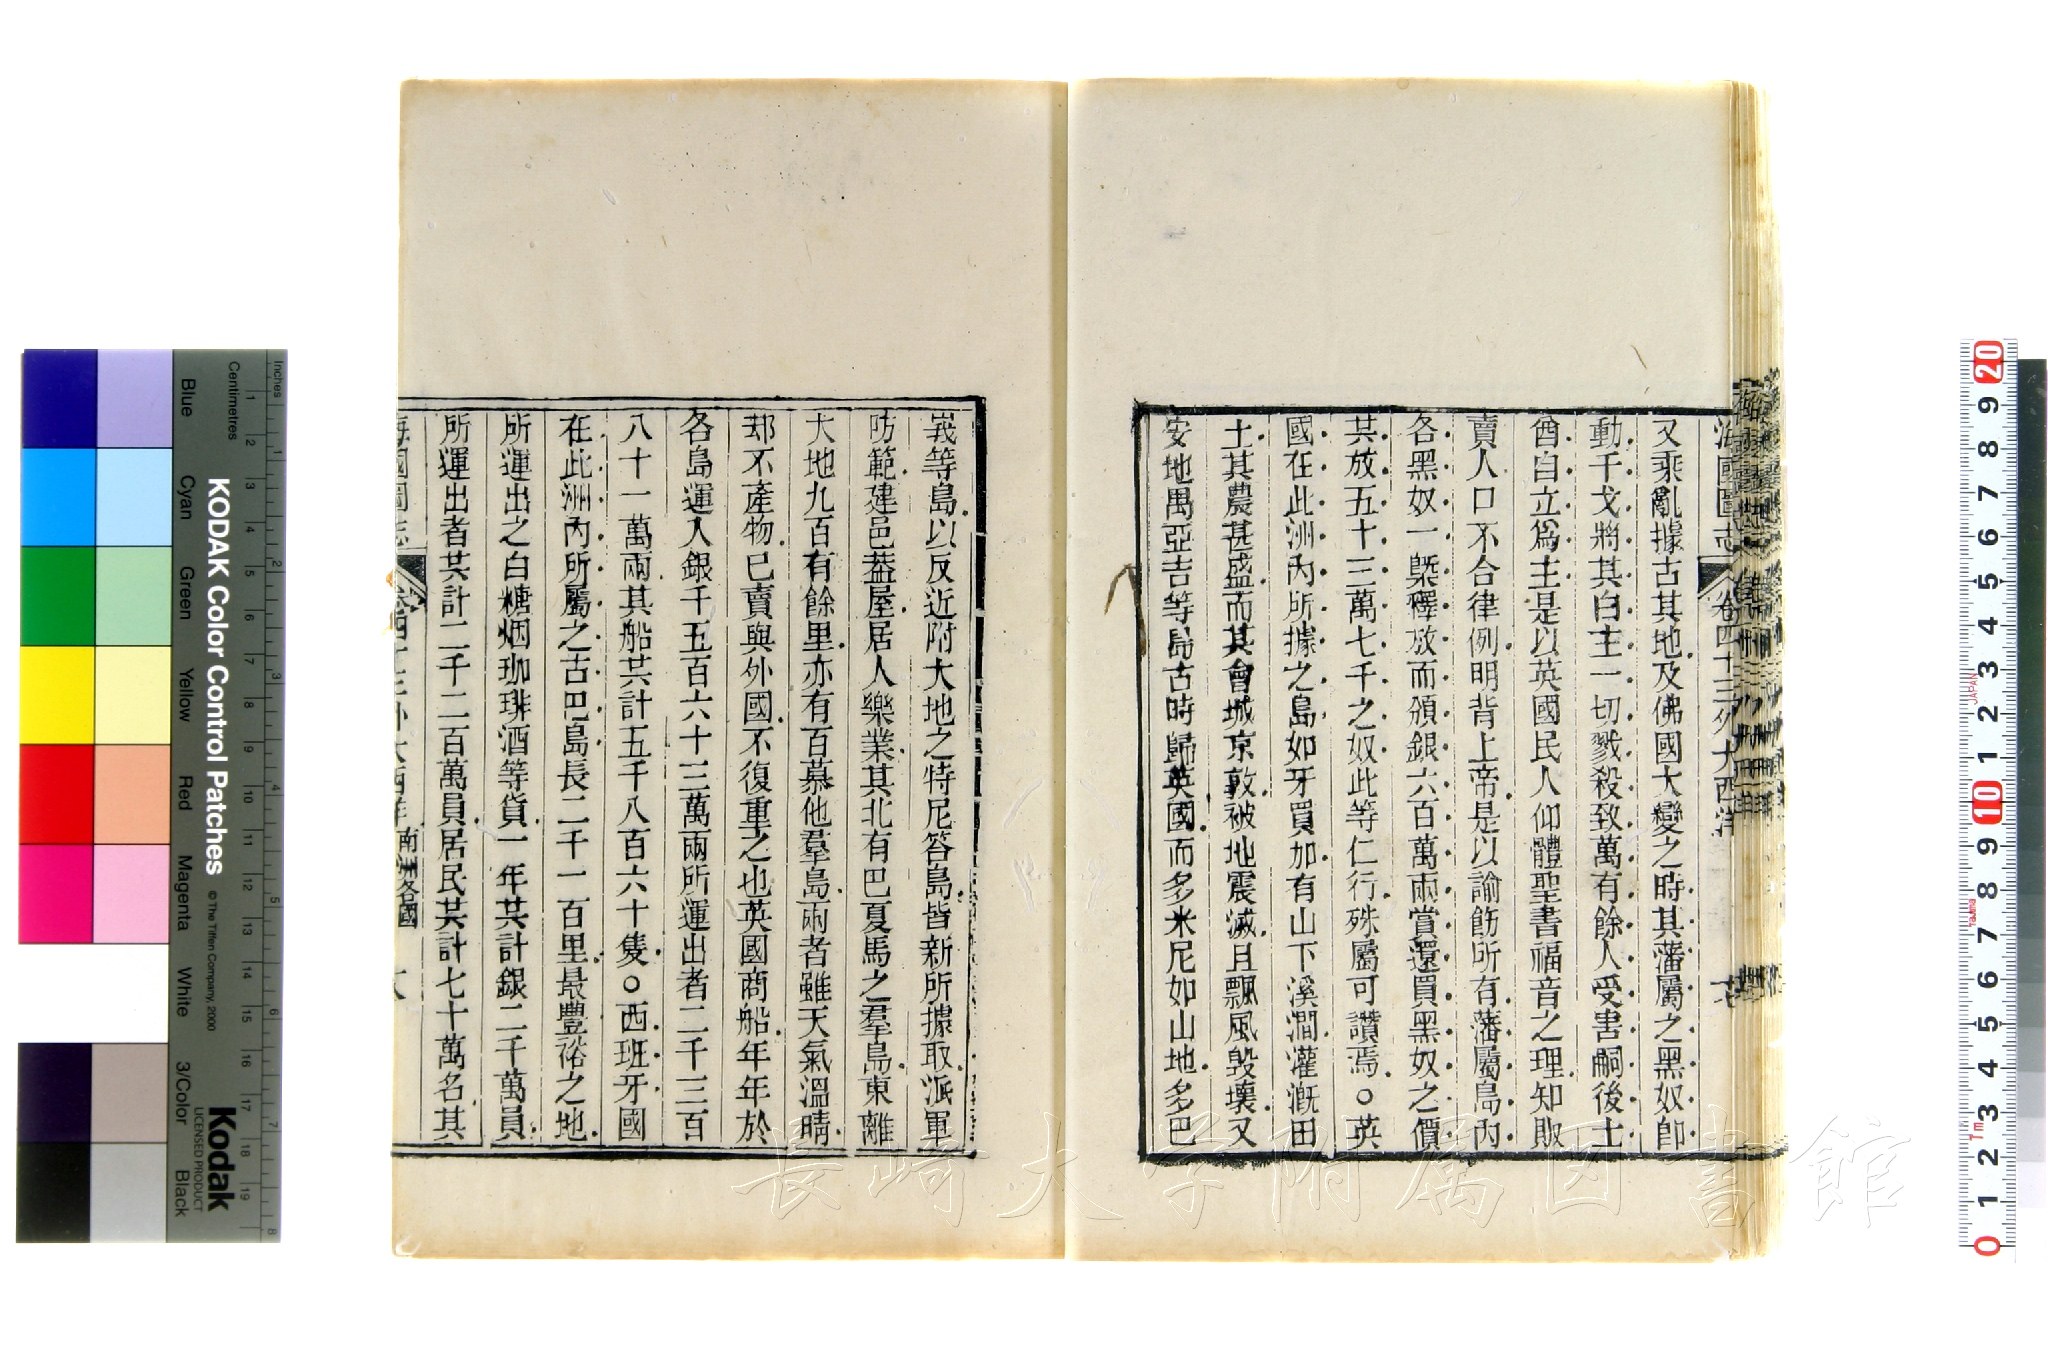 海國圖志 卷四十三外大西洋
又乘亂據古其地及佛國大變之時其藩屬之黑奴卽
動干戈將其白主一切戮殺致萬有餘人受害嗣後土
酋自立爲主是以英國民人仰體聖書福音之理知販
賣人口不合律例明背上帝是以諭飭所有藩屬島內
各黑奴一槩釋放而頒銀六百萬兩賞還買黑奴之價
其放五十三萬七千之奴此等仁行殊屬可讚焉○英
國在此洲內所據之島如牙買加有山下溪澗灌溉田
土其農甚盛而其會城京敦被地震滅且飄風毁壞又
安地禺亞吉等島古時歸英國而多米尼如山地多巴
峩等島以反近附大地之特尼答島皆新所據取派軍
防範建邑葢屋居人樂業其北有巴夏馬之羣島東離
大地九百有餘里亦有百慕他羣島兩者雖天氣溫晴
却不產物已賣與外國不復重之也英國商船年年於
各島運入銀千五百六十三萬兩所運出者二千三百
八十一萬兩其船共計五千八百六十隻○西班牙國
在此洲內所屬之古巴島長二千一百里最豐裕之地
所運出之白糖烟珈琲酒等貨一年共計銀二千萬員
所運出者共計二千二百萬員居民共計七十萬名其
海國圖志 南洲各國
KODAK Color Control Patches
© The Tiffen Company, 2000
Kodak
LICENSED PRODUCT
Inches
Centimetres
Blue Cyan Green Yellow Red Magenta White 3/Color Black
1 2 3 4 5 6 7 8 9 10 11 12 13 14 15 16 17 18 19
1 2 3 4 5 6 7 8
20 9 8 7 6 5 4 3 2 1 10 9 8 7 6 5 4 3 2 1 0
JAPAN
長崎大学附属図書館